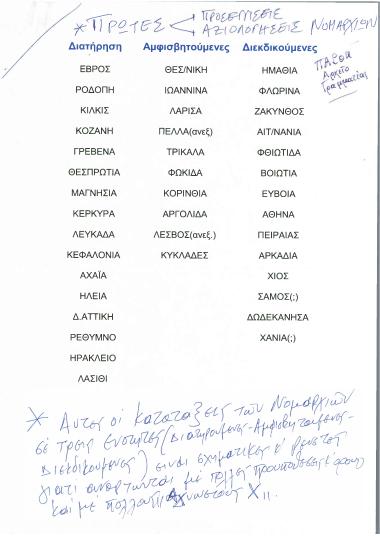 * ΠΡΩΤΕΣ < ΠΡΟΣΕΓΓΙΣΕΙΣ
ΑΞΙΟΛΟΓΗΣΕΙΣ ΝΟΜΑΡΧΙΩΝ
Διατήρηση Αμφισβητούμενες Διεκδικούμενες
ΠΑΣΟΚ
Αρχείο
Γραμματείας
ΕΒΡΟΣ ΘΕΣ/ΝΙΚΗ ΗΜΑΘΙΑ
ΡΟΔΟΠΗ ΙΩΑΝΝΙΝΑ ΦΛΩΡΙΝΑ
ΚΙΛΚΙΣ ΛΑΡΙΣΑ ΖΑΚΥΝΘΟΣ
ΚΟΖΑΝΗ ΠΕΛΛΑ(ανεξ) ΑΙΤ/ΝΑΝΙΑ
ΓΡΕΒΕΝΑ ΤΡΙΚΑΛΑ ΦΘΙΩΤΙΔΑ
ΘΕΣΠΡΩΤΙΑ ΦΩΚΙΔΑ ΒΟΙΩΤΙΑ
ΜΑΓΝΗΣΙΑ ΚΟΡΙΝΘΙΑ ΕΥΒΟΙΑ
ΚΕΡΚΥΡΑ ΑΡΓΟΛΙΔΑ ΑΘΗΝΑ
ΛΕΥΚΑΔΑ ΛΕΣΒΟΣ(ανεξ.) ΠΕΙΡΑΙΑΣ
ΚΕΦΑΛΟΝΙΑ ΚΥΚΛΑΔΕΣ ΑΡΚΑΔΙΑ
ΑΧΑΪΑ ΧΙΟΣ
ΗΛΕΙΑ ΣΑΜΟΣ(;)
Δ.ΑΤΤΙΚΗ ΔΩΔΕΚΑΝΗΣΑ
ΡΕΘΥΜΝΟ ΧΑΝΙΑ(;)
ΗΡΑΚΛΕΙΟ
ΛΑΣΙΘΙ
* Αυτές οι κατατάξεις των Νομαρχιών
σε τρεις ενότητες (Διατηρούμενες-Αμφισβητούμενες-
Διεκδικούμενες) είναι σχηματικές κ' ρευστές
γιατί αναρτώνται με πολλές προϋποθέσεις κ' όρους
και με πολλούς αγνώστους Χ